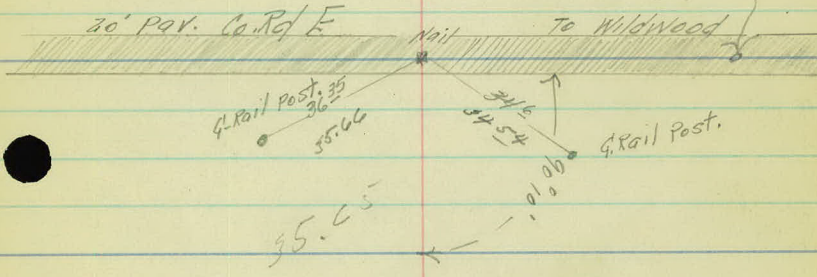 20' Pav. Co. Rd E
Nail
To Wildwood
G-Rail Post.
36 35
35.66
34 6
34 54
G. Rail Post.
90° 10'
35.65